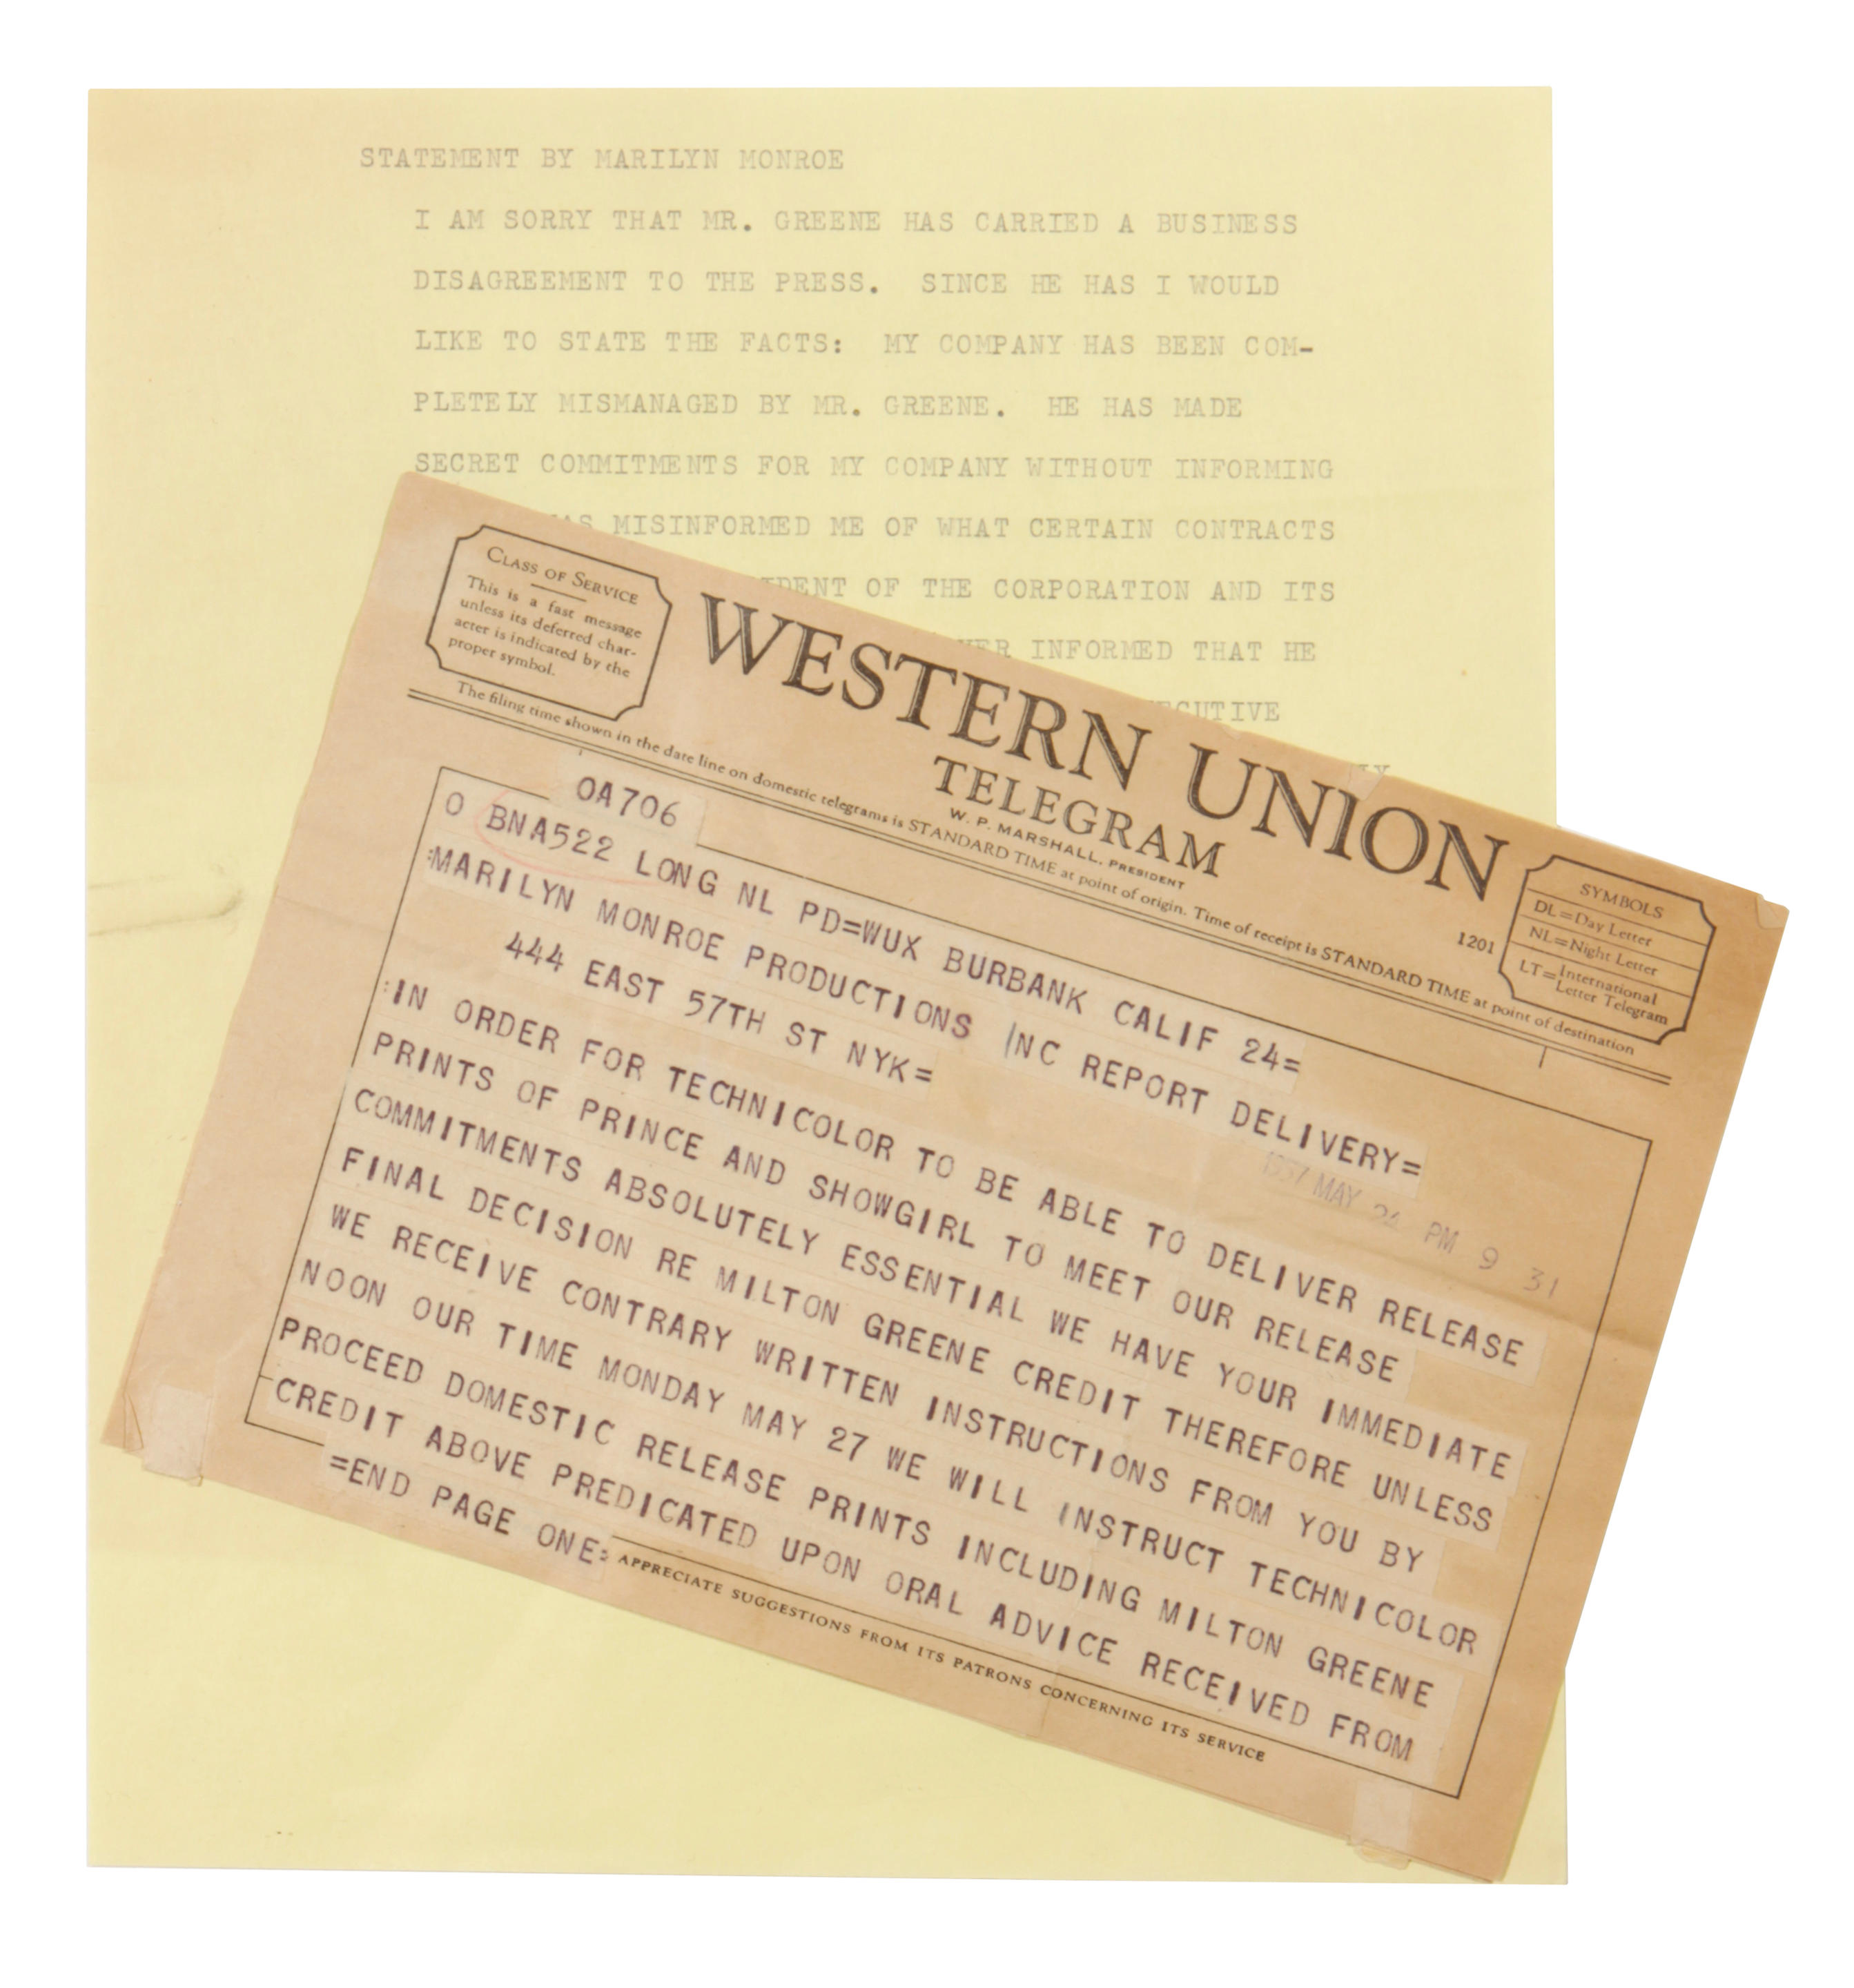 STATEMENT BY MARILYN MONROE
I AM SORRY THAT MR. GREENE HAS CARRIED A BUSINESS
DISAGREEMENT TO THE PRESS. SINCE HE HAS I WOULD
LIKE TO STATE THE FACTS: MY COMPANY HAS BEEN COM-
PLETELY MISMANAGED BY MR. GREENE. HE HAS MADE
SECRET COMMITMENTS FOR MY COMPANY WITHOUT INFORMING
MISINFORMED ME OF WHAT CERTAIN CONTRACTS
OF THE CORPORATION AND ITS
INFORMED THAT HE
CLASS OF SERVICE
This is a fast message
unless its deferred char-
acter is indicated by the
proper symbol.
WESTERN UNION
TELEGRAM
W. P. MARSHALL, PRESIDENT
1201
SYMBOLS
DL=Day Letter
NL=Night Letter
LT=International
Letter Telegram
The filing time shown in the date line on domestic telegrams is STANDARD TIME at point of origin. Time of receipt is STANDARD TIME at point of destination
OA706
O BNA522 LONG NL PD=WUX BURBANK CALIF 24=
:MARILYN MONROE PRODUCTIONS INC REPORT DELIVERY=
444 EAST 57TH ST NYK=
1957 MAY 24 PM 9 31
:IN ORDER FOR TECHNICOLOR TO BE ABLE TO DELIVER RELEASE
PRINTS OF PRINCE AND SHOWGIRL TO MEET OUR RELEASE
COMMITMENTS ABSOLUTELY ESSENTIAL WE HAVE YOUR IMMEDIATE
FINAL DECISION RE MILTON GREENE CREDIT THEREFORE UNLESS
WE RECEIVE CONTRARY WRITTEN INSTRUCTIONS FROM YOU BY
NOON OUR TIME MONDAY MAY 27 WE WILL INSTRUCT TECHNICOLOR
PROCEED DOMESTIC RELEASE PRINTS INCLUDING MILTON GREENE
CREDIT ABOVE PREDICATED UPON ORAL ADVICE RECEIVED FROM
=END PAGE ONE=
APPRECIATE SUGGESTIONS FROM ITS PATRONS CONCERNING ITS SERVICE